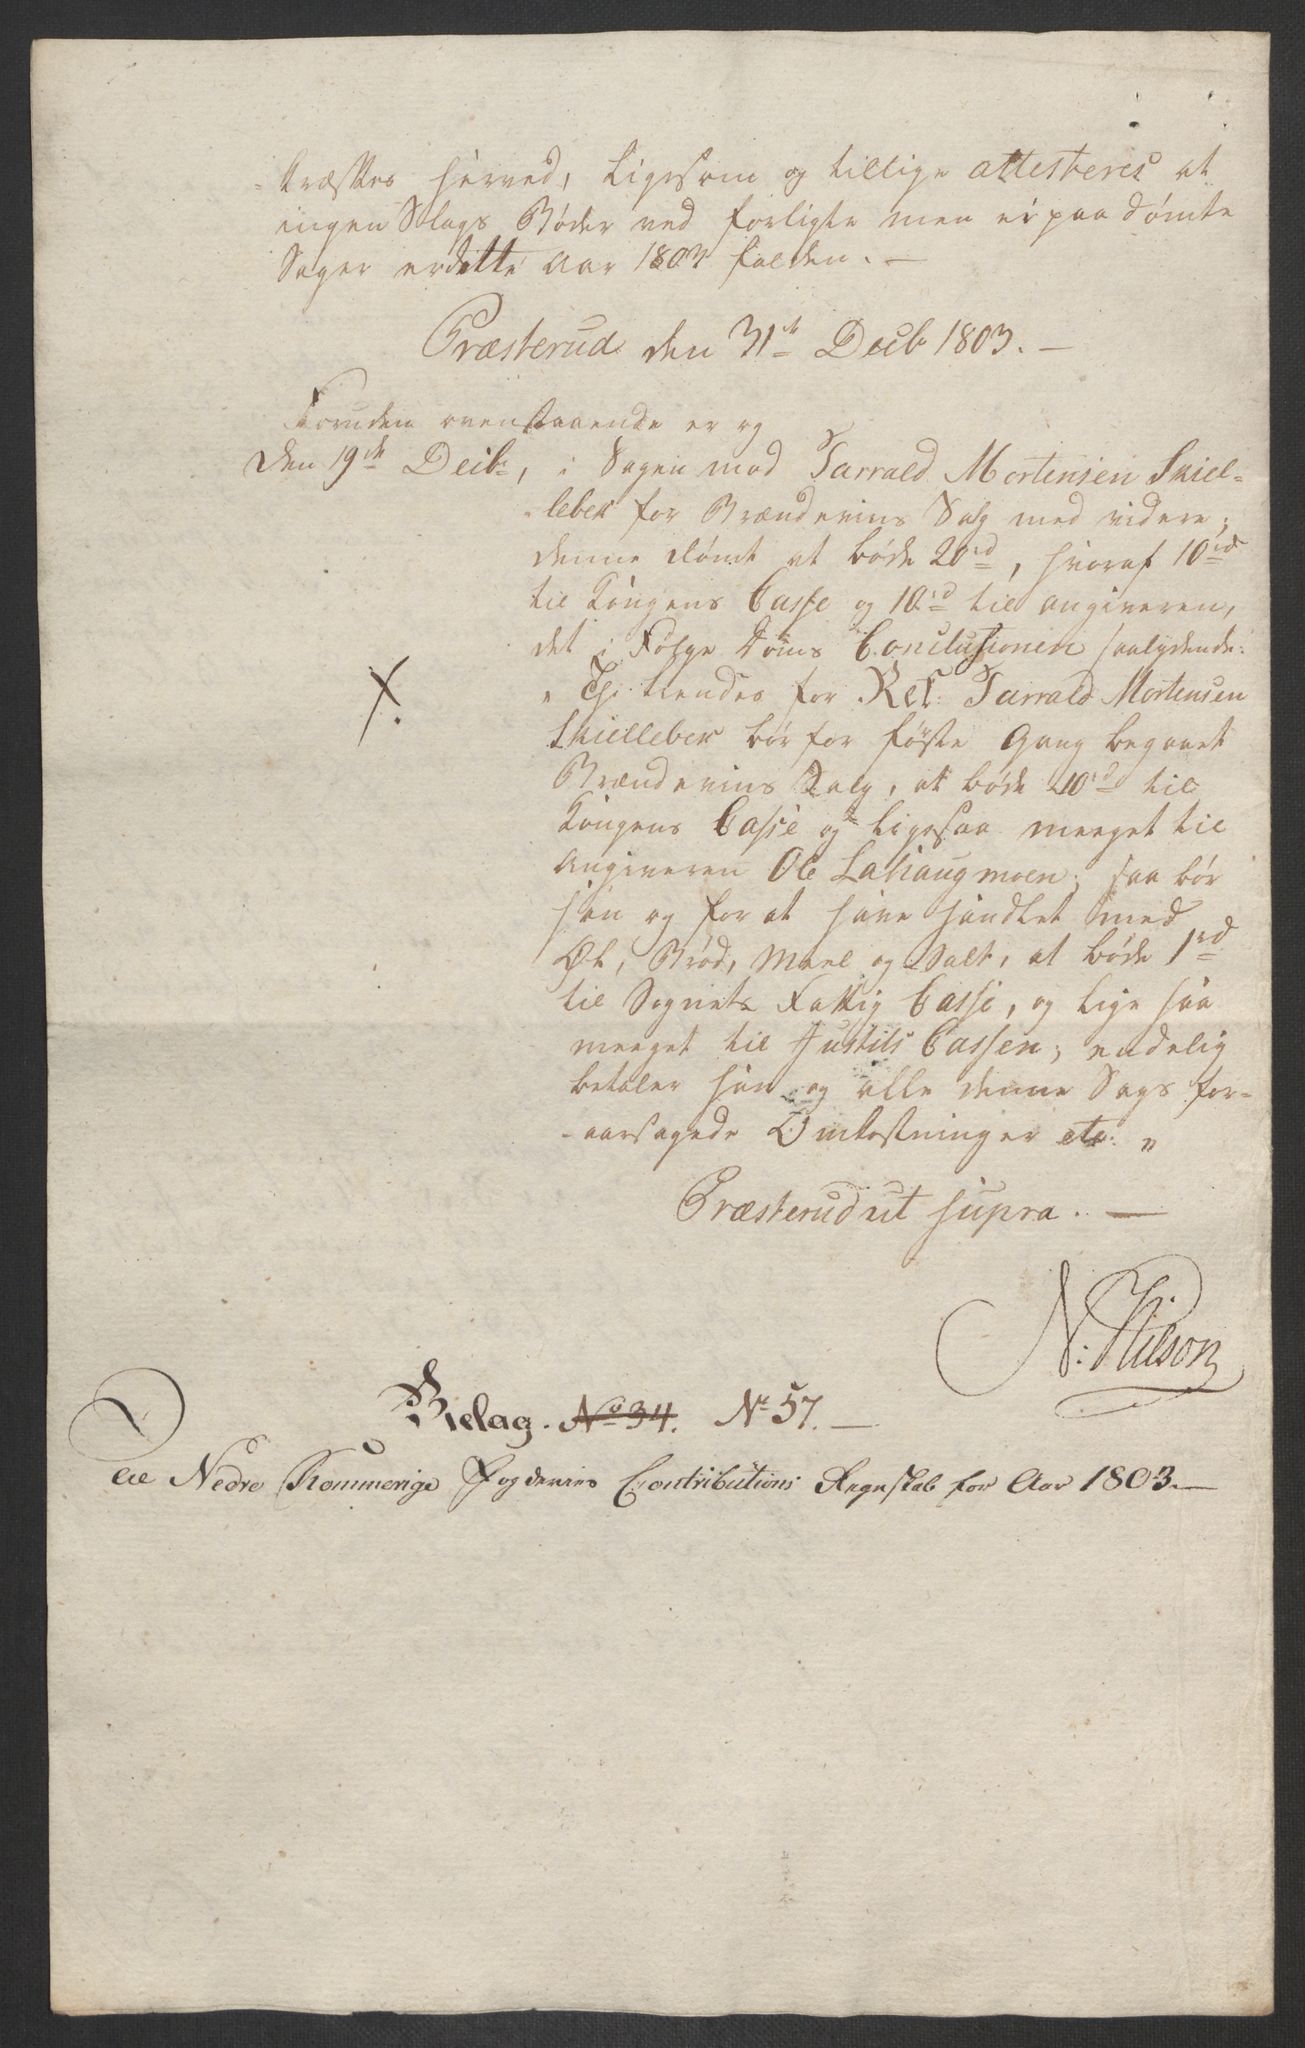 -kræftes herved, ligesom og tillige attesteres at
ingen Slags Bøder ved forligte men ei paadømte
Sager er dette Aar 1803 falden. —
Præsterud den 31te Decb 1803. —
Foruden ovenstaaende er og
den 19de Decbr, i Sagen mod Tarrald Mortensen Skiel-
-lebek for Brændeviins Salg med videre;
denne dømt at bøde 20rd, hvoraf 10rd
til Kongens Casse og 10rd til Angiveren,
det i Følge Doms Conclusionen saalydende:
"Thi kiendes for Ret: Tarrald Mortensen
Skiellebek bør for første Gang begaaet
Brændeviins Salg, at bøde 10rd til
Kongens Casse og ligesaa meeget til
Angiveren Ole Lahaugmoen; saa bør
han og for at have handlet med
Øl, Brød, Meel og Salt, at bøde 1rd
til Sognets Fattig Casse, og lige saa
meeget til Justits Cassen; endelig
betaler han og alle denne Sags for-
-aarsagede Omkostninger etc. "
X.
Præsterud ut supra. —
N: Nilson
Bielag. No 34. No 57. —
Til Nedre Rommerige Fogderies Contributions Regnskab for Aar 1803. —